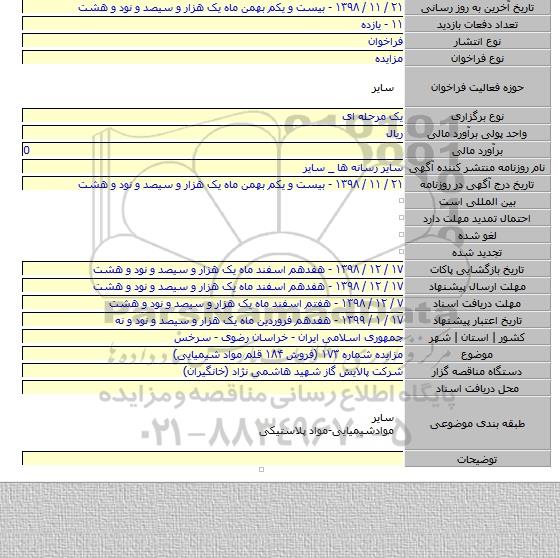 تاریخ آخرین به روز رسانی ۲۱ / ۱۱ / ۱۳۹۸ - بیست و یکم بهمن ماه یک هزار و سیصد و نود و هشت
تعداد دفعات بازدید ۱۱ - یازده
نوع انتشار فراخوان
نوع فراخوان مزایده
حوزه فعالیت فراخوان سایر
نوع برگزاری یک مرحله ای
واحد پولی برآورد مالی ریال
برآورد مالی 0
نام روزنامه منتشر کننده آگهی سایر رسانه ها _ سایر
تاریخ درج آگهی در روزنامه ۲۱ / ۱۱ / ۱۳۹۸ - بیست و یکم بهمن ماه یک هزار و سیصد و نود و هشت
بین المللی است
احتمال تمدید مهلت دارد
لغو شده
تجدید شده
تاریخ بازگشایی پاکات ۱۷ / ۱۲ / ۱۳۹۸ - هفدهم اسفند ماه یک هزار و سیصد و نود و هشت
مهلت ارسال پیشنهاد ۱۷ / ۱۲ / ۱۳۹۸ - هفدهم اسفند ماه یک هزار و سیصد و نود و هشت
مهلت دریافت اسناد ۷ / ۱۲ / ۱۳۹۸ - هفتم اسفند ماه یک هزار و سیصد و نود و هشت
تاریخ اعتبار پیشنهاد ۱۷ / ۱ / ۱۳۹۹ - هفدهم فروردین ماه یک هزار و سیصد و نود و نه
کشور | استان | شهر جمهوری اسلامی ایران - خراسان رضوی - سرخس
موضوع مزایده شماره ۱۷۳ (فروش ۱۸۴ قلم مواد شیمیایی)
دستگاه مناقصه گزار شرکت پالایش گاز شهید هاشمی نژاد (خانگیران)
محل دریافت اسناد
پایگاه اطلاع رسانی مناقصه و مزایده
طبقه بندی موضوعی سایر
موادشیمیایی-مواد پلاستیکی
۰۲۱-۸۸۳۴۹۶۷۰-۵
توضیحات